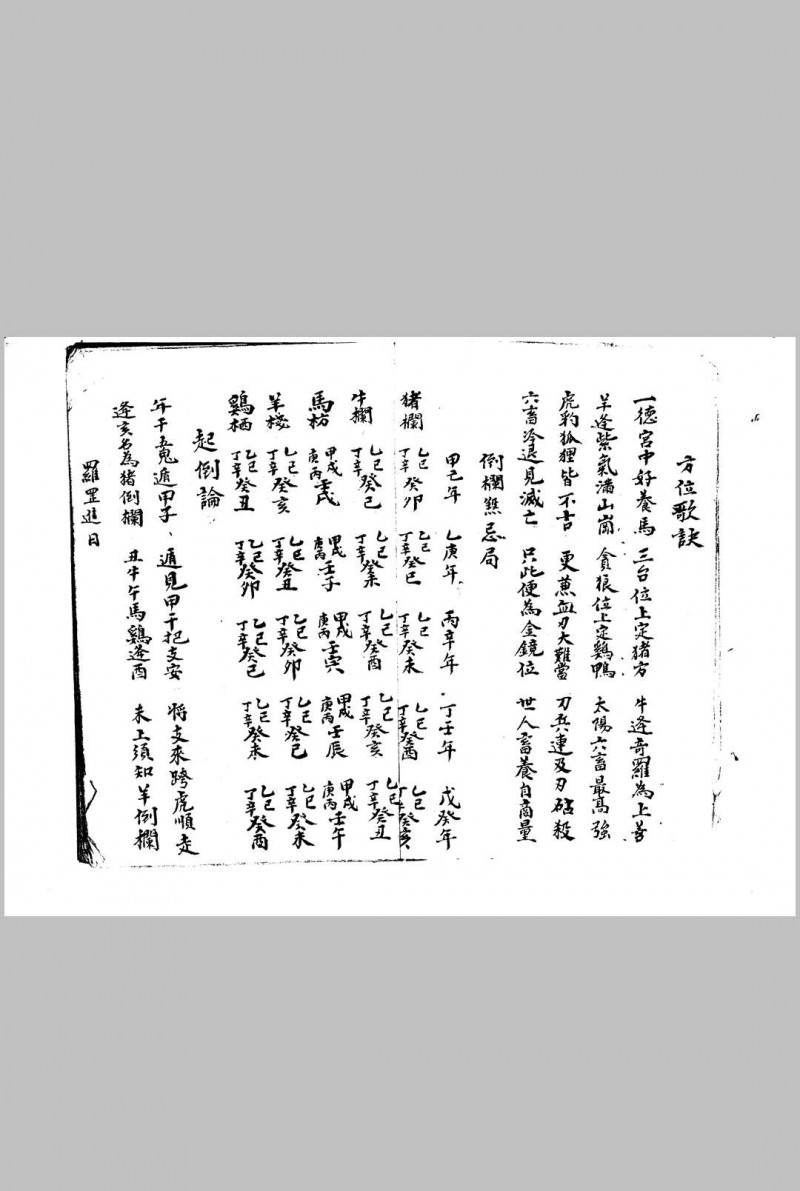 方位歌訣
一德宮中好養馬 三台位上定猪方 牛逢奇羅為上善
羊逢紫氣滿山崗 貪狼位上定鷄鴨 太陽六畜最高強
虎豹狐狸皆不吉 更蕙血刃大難當 刃兵連及刃砧殺
六畜冷退見滅亡 只此便為金鏡位 世人畜養自商量
倒欄煞忌局
甲己年 乙庚年 丙辛年 丁壬年 戊癸年
猪欄 乙己丁辛癸卯 乙己丁辛癸巳 乙己丁辛癸未 乙己丁辛癸酉 乙己丁辛癸亥
牛欄 乙己丁辛癸巳 乙己丁辛癸未 乙己丁辛癸酉 乙己丁辛癸亥 乙己丁辛癸丑
馬枋 甲戊庚丙壬戌 甲戊庚丙壬子 甲戊庚丙壬寅 甲戊庚丙壬辰 甲戊庚丙壬午
羊棧 乙己丁辛癸亥 乙己丁辛癸丑 乙己丁辛癸卯 乙己丁辛癸巳 乙己丁辛癸未
鷄栖 乙己丁辛癸丑 乙己丁辛癸卯 乙己丁辛癸巳 乙己丁辛癸未 乙己丁辛癸酉
起倒論
年干五鬼遁甲子、遁見甲干把支安 將支來跨虎順走
逢亥名為猪倒欄 丑牛午馬鷄逢酉 未上須知羊倒欄
羅罡進日